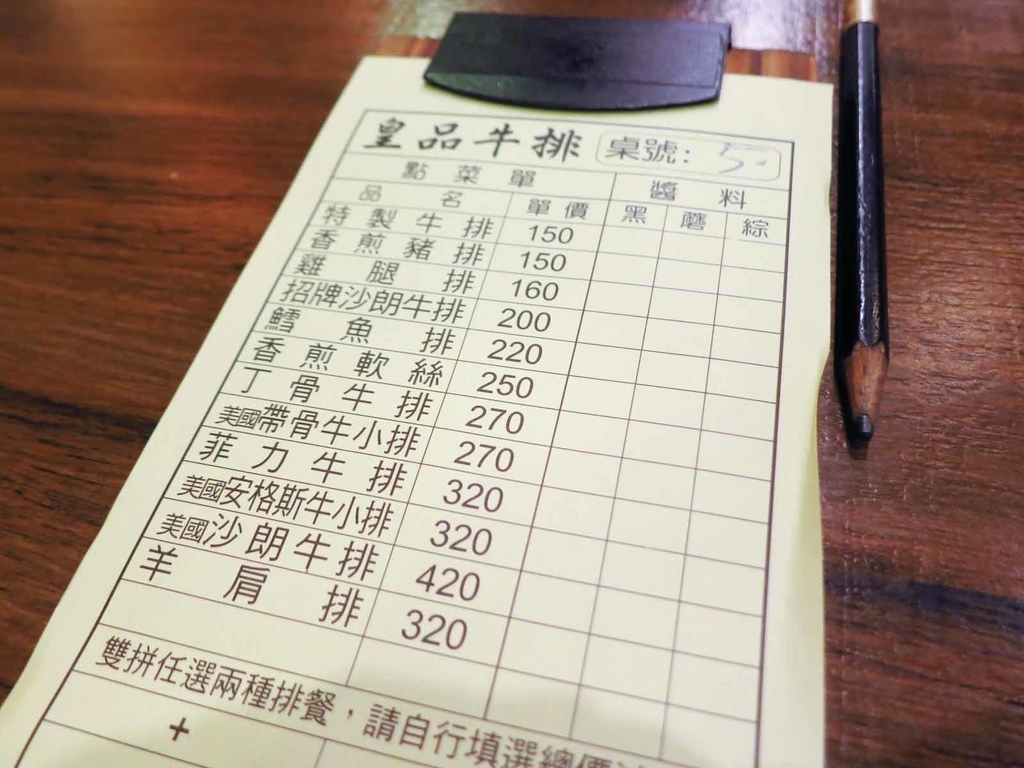 皇品牛排 桌號: 5.
點菜單 醬料
品名 單價 黑 磨 綜
特製牛排 150
香煎豬排 150
雞腿排 160
招牌沙朗牛排 200
鱈魚排 220
香煎軟絲 250
丁骨牛排 270
美國帶骨牛小排 270
菲力牛排 320
美國安格斯牛小排 320
美國沙朗牛排 420
羊肩排 320
雙拼任選兩種排餐，請自行填選總價
+